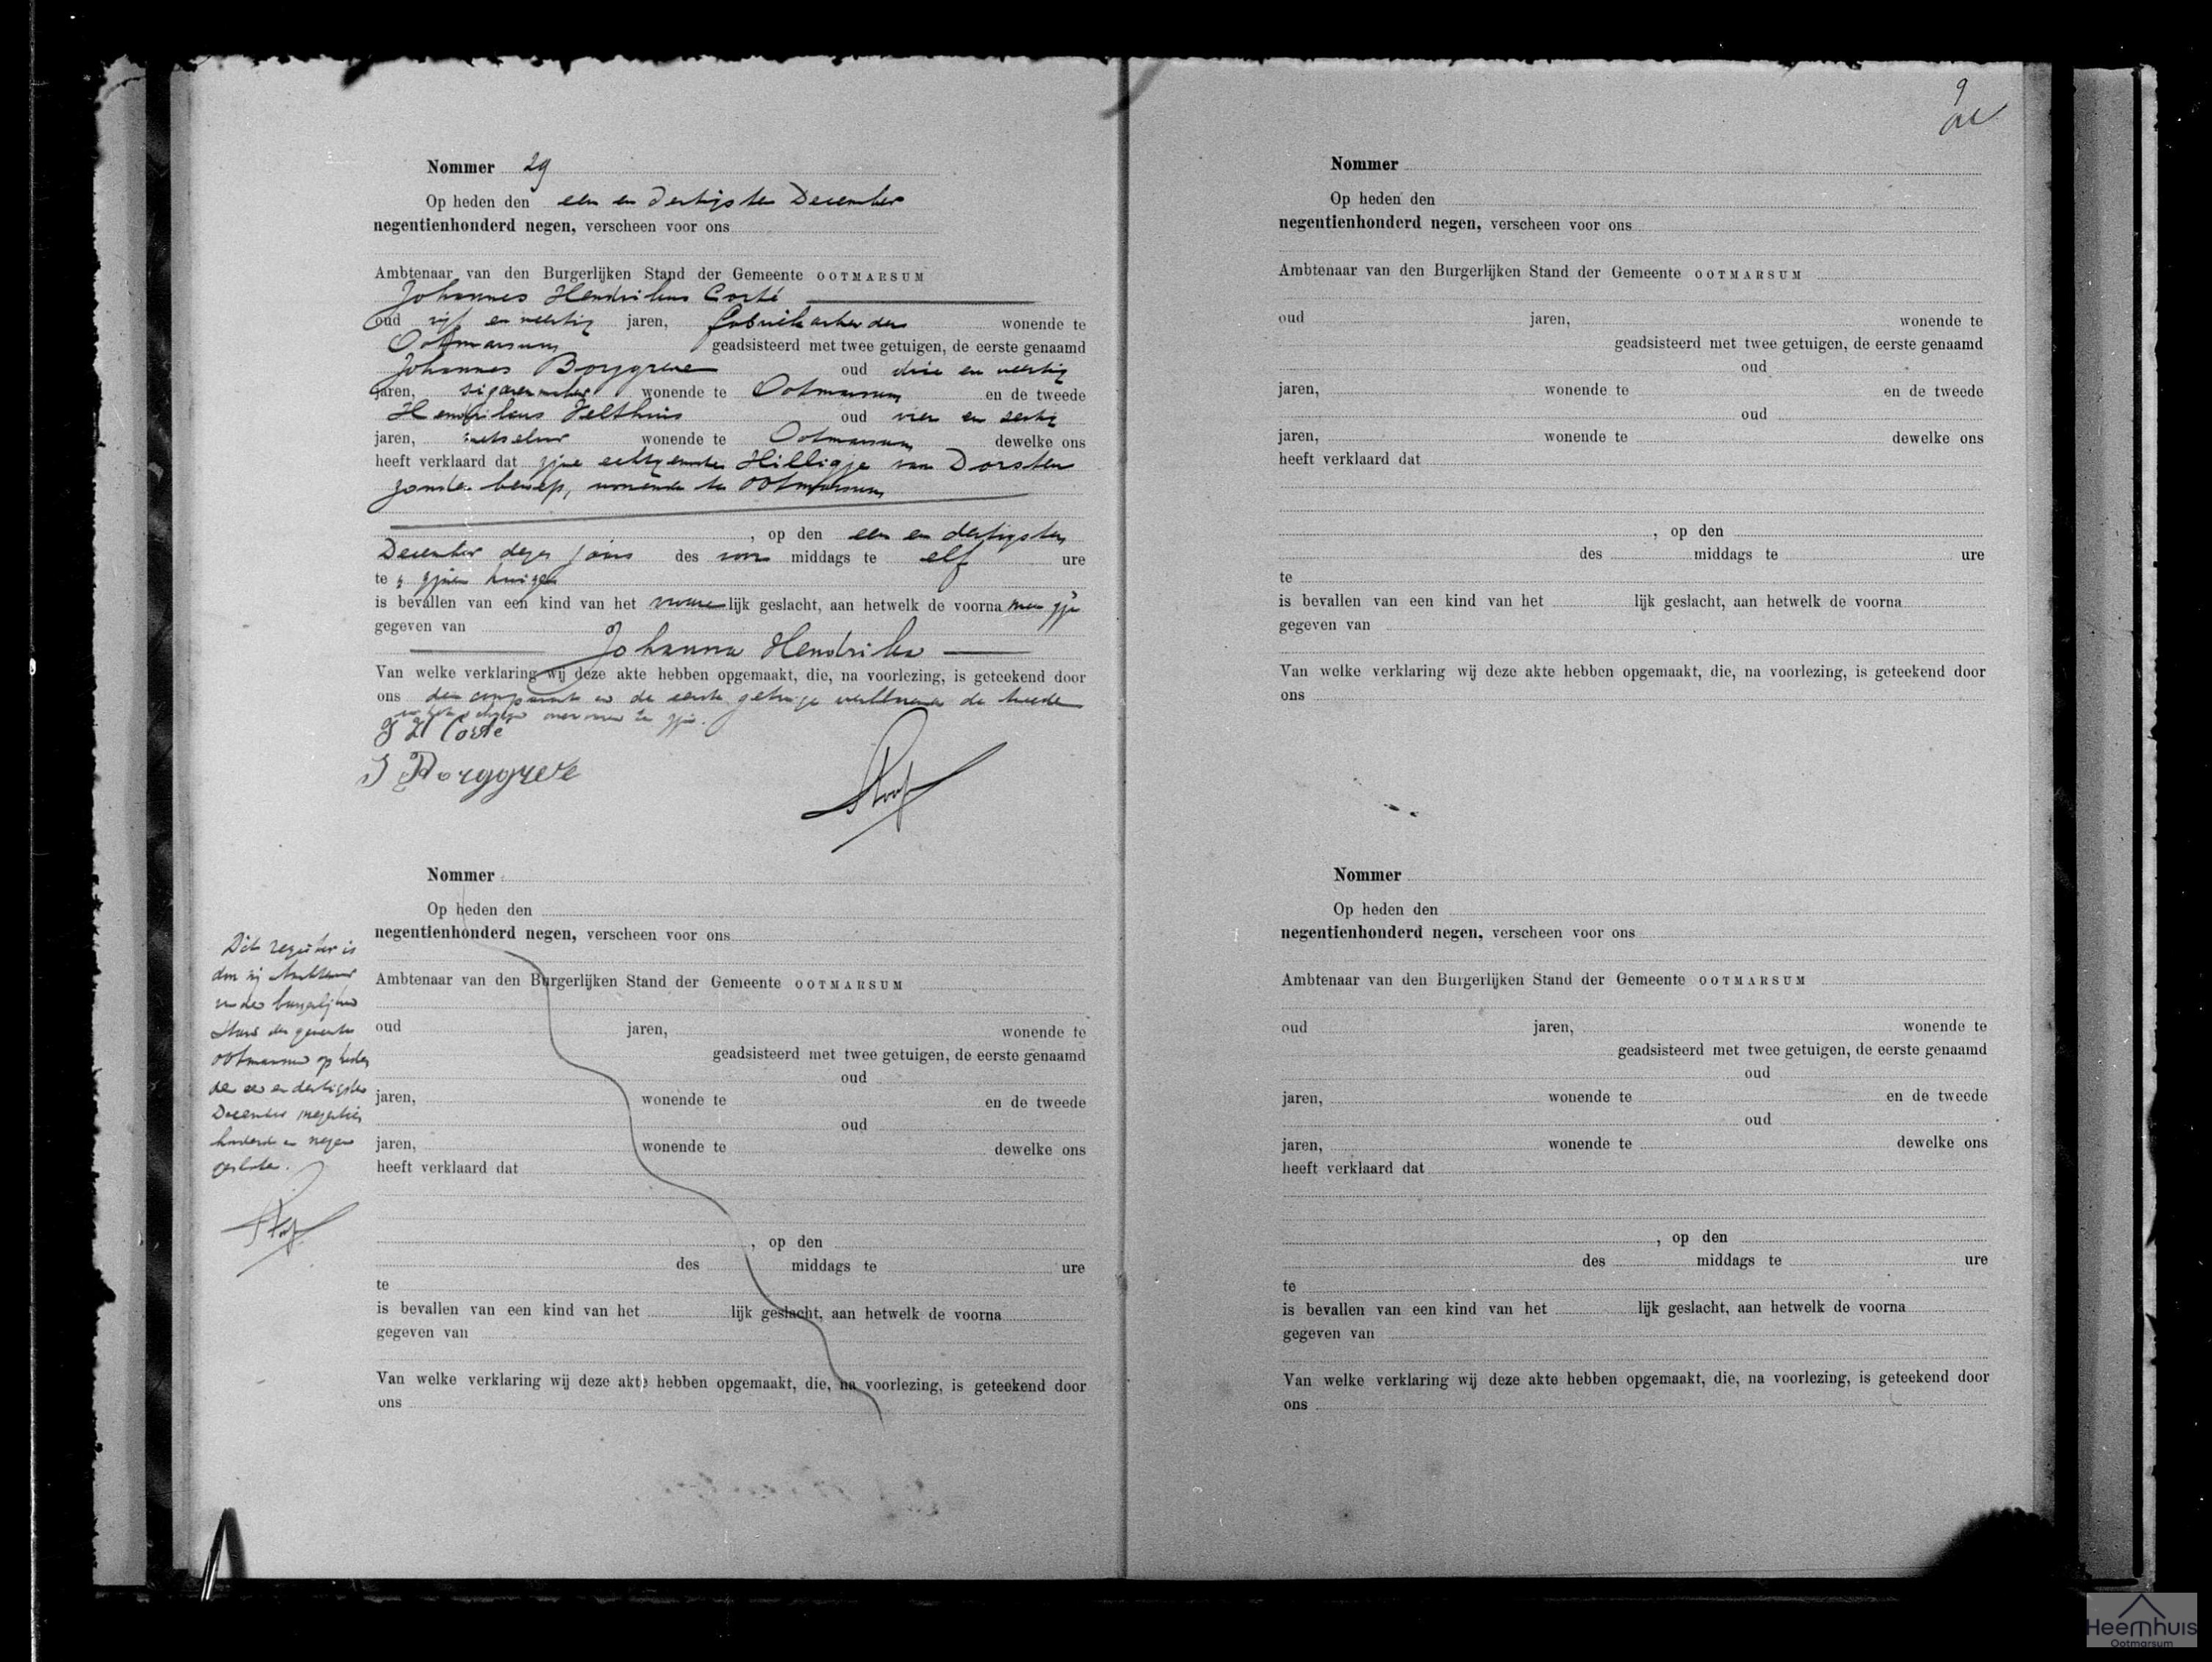 Nommer 29
Op heden den een en dertigsten December
negentienhonderd negen, verscheen voor ons
Ambtenaar van den Burgerlijken Stand der Gemeente OOTMARSUM
Johannes Hendrikus Corté
oud vijf en veertig jaren, fabriekarbeider wonende te
Ootmarsum geadsisteerd met twee getuigen, de eerste genaamd
Johannes Borggreve oud drie en veertig
jaren, sigarenmaker wonende te Ootmarsum en de tweede
Hendrikus Velthuis oud vier en zestig
jaren, metselaar wonende te Ootmarsum dewelke ons
heeft verklaard dat zijne echtgenoote Hilligje van Dorsten
zonder beroep, wonende te Ootmarsum
, op den een en dertigsten
December dezes jaars des voor middags te elf ure
te zijnen huize
is bevallen van een kind van het vrouwelijk geslacht, aan hetwelk de voornamen zijn
gegeven van
Johanna Hendrika
Van welke verklaring wij deze akte hebben opgemaakt, die, na voorlezing, is geteekend door
ons den comparant en de eerste getuige verklarende de tweede
te zijn.
J H Corté
J Borggreve
Nommer
Op heden den
negentienhonderd negen, verscheen voor ons
Ambtenaar van den Burgerlijken Stand der Gemeente OOTMARSUM
oud jaren, wonende te
geadsisteerd met twee getuigen, de eerste genaamd
oud
jaren, wonende te en de tweede
oud
jaren, wonende te dewelke ons
heeft verklaard dat
, op den
des middags te ure
te
is bevallen van een kind van het lijk geslacht, aan hetwelk de voorna
gegeven van
Van welke verklaring wij deze akte hebben opgemaakt, die, na voorlezing, is geteekend door
ons
Dit register is
door mij Ambtenaar
van den burgerlijken
Stand der gemeente
Ootmarsum op heden
den een en dertigsten
December negentien
honderd en negen
gesloten.
9
Nommer
Op heden den
negentienhonderd negen, verscheen voor ons
Ambtenaar van den Burgerlijken Stand der Gemeente OOTMARSUM
oud jaren, wonende te
geadsisteerd met twee getuigen, de eerste genaamd
oud
jaren, wonende te en de tweede
oud
jaren, wonende te dewelke ons
heeft verklaard dat
, op den
des middags te ure
te
is bevallen van een kind van het lijk geslacht, aan hetwelk de voorna
gegeven van
Van welke verklaring wij deze akte hebben opgemaakt, die, na voorlezing, is geteekend door
ons
Nommer
Op heden den
negentienhonderd negen, verscheen voor ons
Ambtenaar van den Burgerlijken Stand der Gemeente OOTMARSUM
oud jaren, wonende te
geadsisteerd met twee getuigen, de eerste genaamd
oud
jaren, wonende te en de tweede
oud
jaren, wonende te dewelke ons
heeft verklaard dat
, op den
des middags te ure
te
is bevallen van een kind van het lijk geslacht, aan hetwelk de voorna
gegeven van
Van welke verklaring wij deze akte hebben opgemaakt, die, na voorlezing, is geteekend door
ons
Heemhuis
Ootmarsum